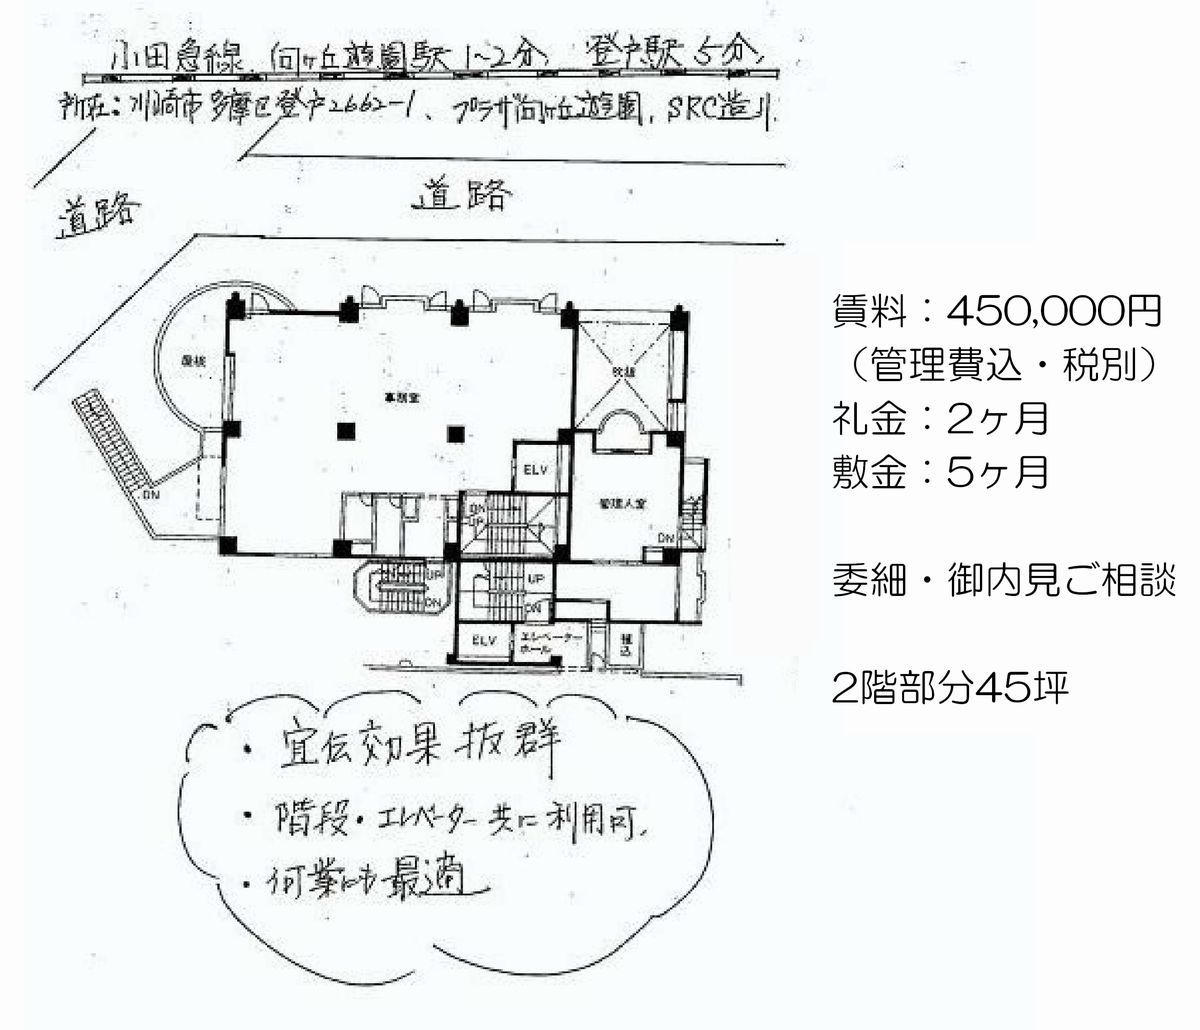 小田急線 向ヶ丘遊園駅 1~2分, 登戸駅 5分,
所在: 川崎市多摩区登戸2662-1、プラザ向ヶ丘遊園, SRC造り.
道路
道路
屋根
事務室
吹抜
ELV
管理人室
DN
DN
UP
DN
UP
DN
UP
DN
ELV
エレベーター
ホール
植込
賃料：450,000円
（管理費込・税別）
礼金：2ヶ月
敷金：5ヶ月
委細・御内見ご相談
2階部分45坪
・宣伝効果抜群
・階段・エレベーター共に利用可.
・何業にも最適